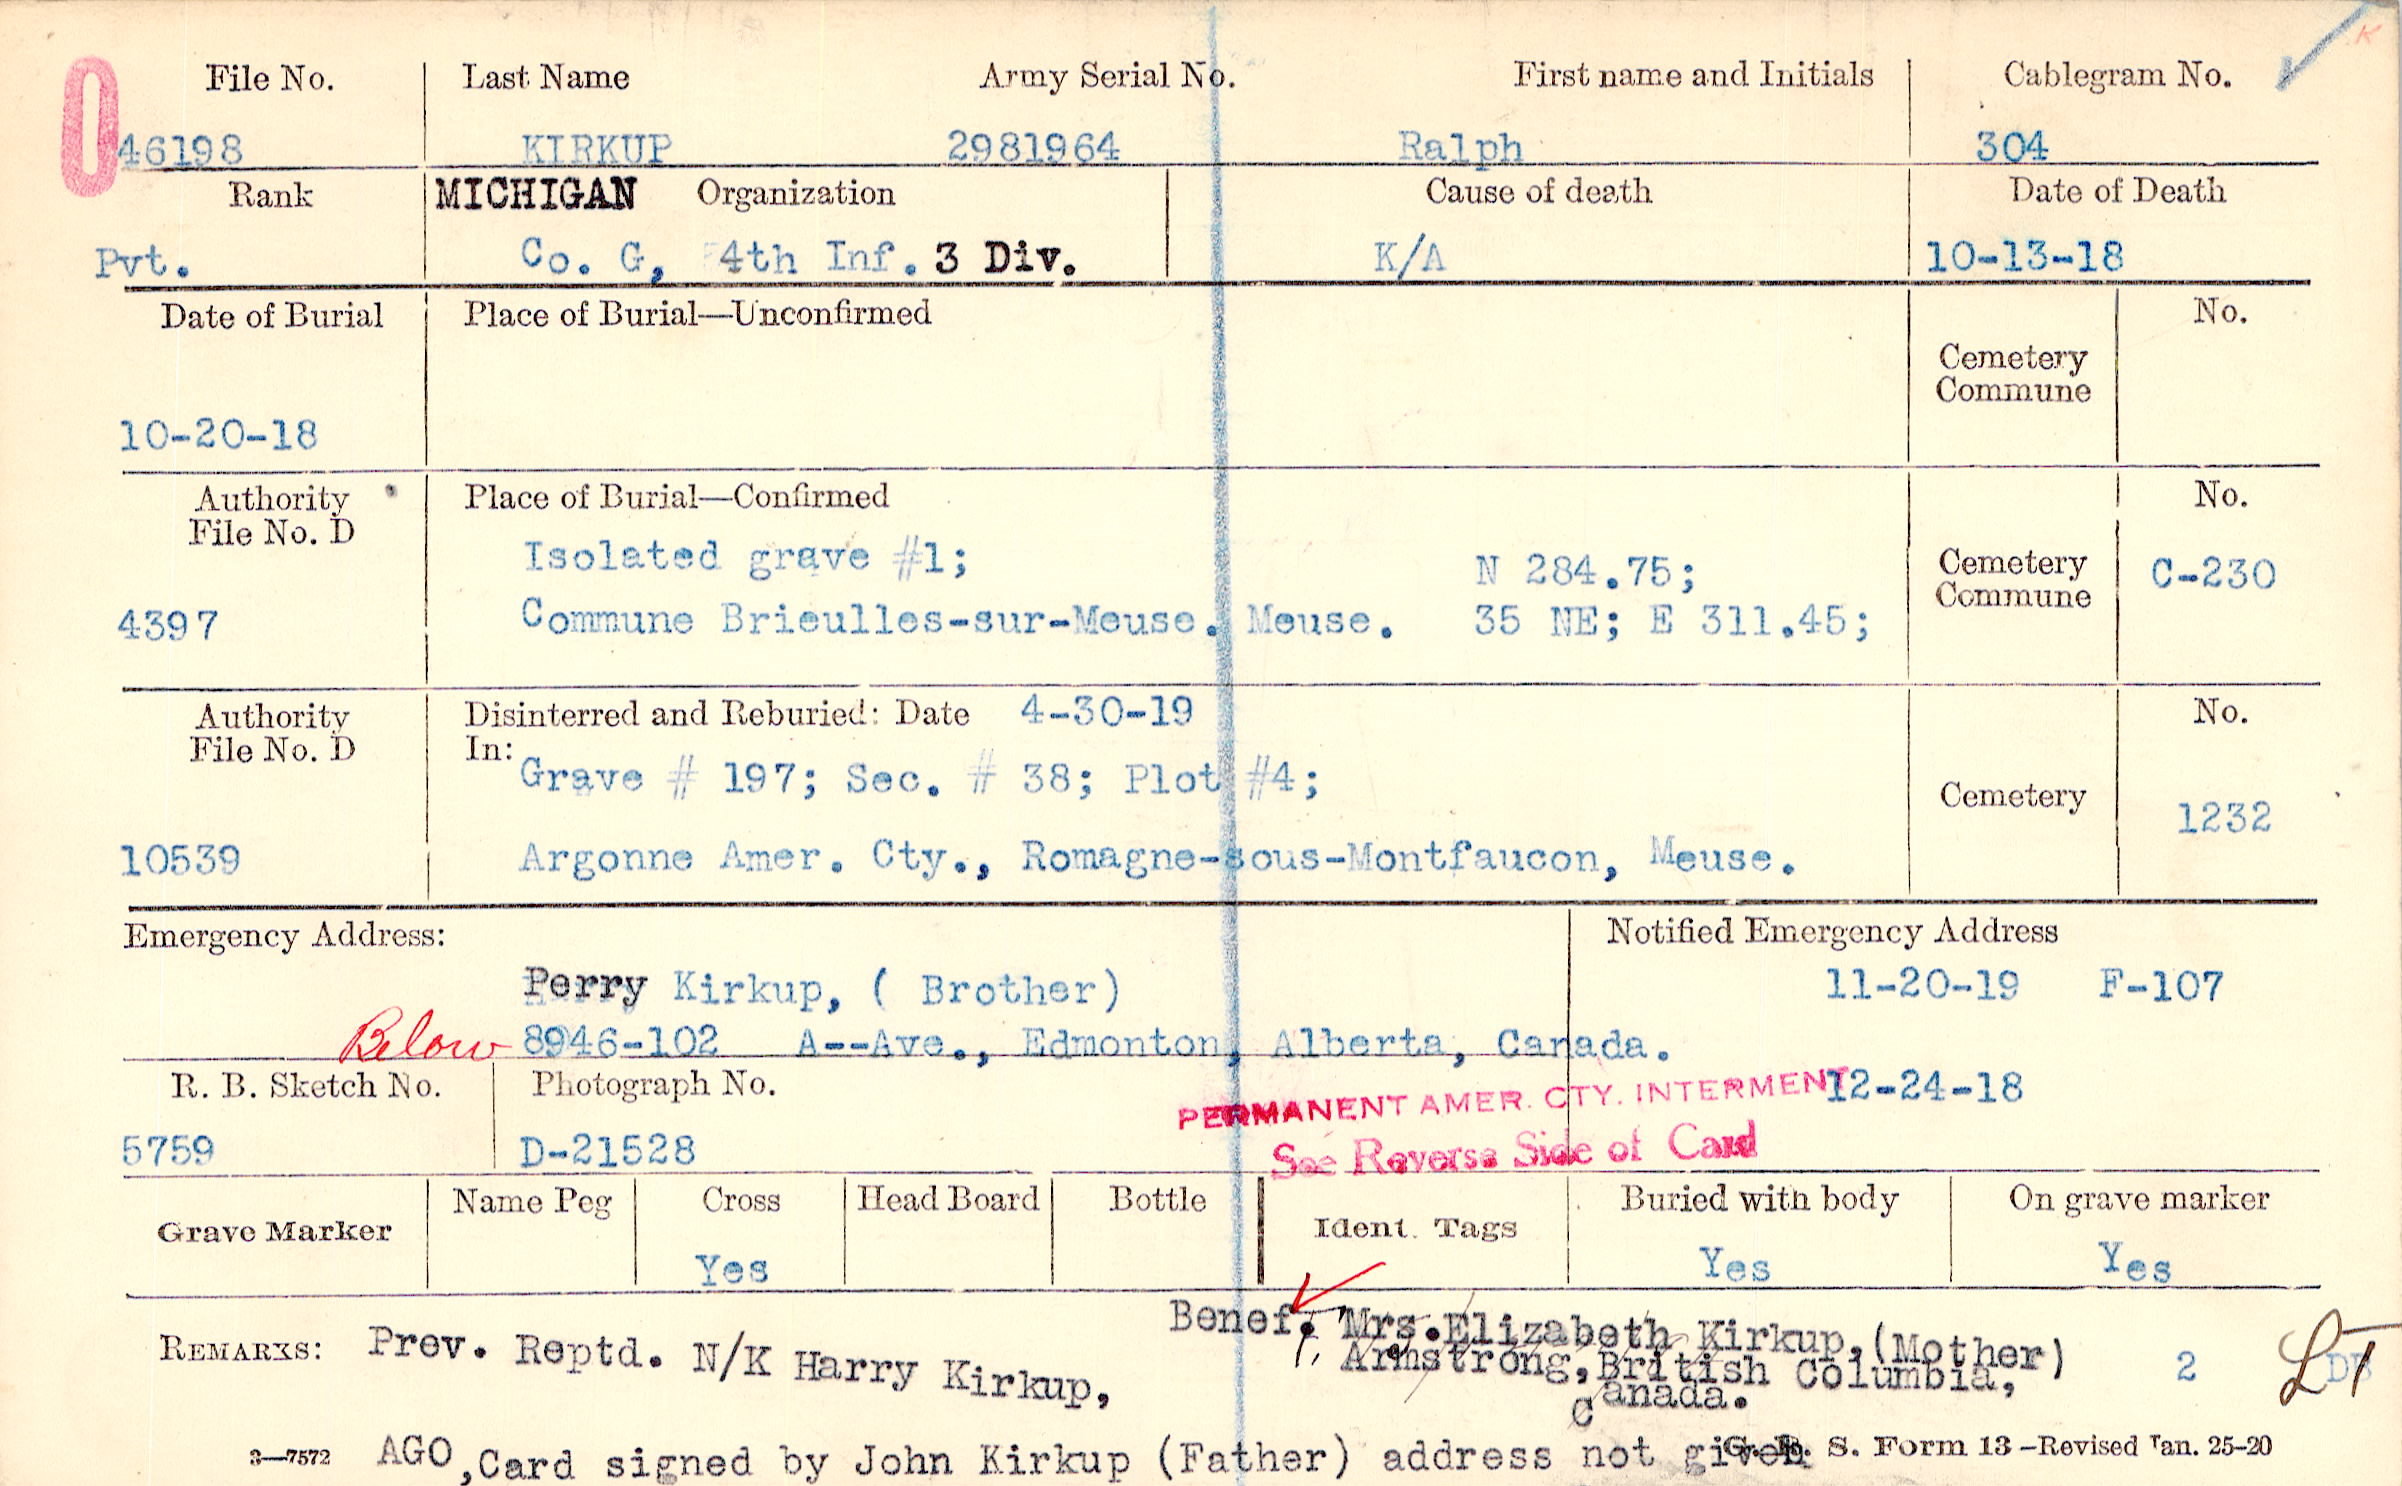 File No. Last Name Army Serial No. First name and Initials Cablegram No. K
0 46198 KIRKUP 2981964 Ralph 304
Rank MICHIGAN Organization Cause of death Date of Death
Pvt. Co. G, 4th Inf. 3 Div. K/A 10-13-18
Date of Burial Place of Burial—Unconfirmed No.
Cemetery
Commune
10-20-18
Authority Place of Burial—Confirmed No.
File No. D
Isolated grave #1; N 284.75; Cemetery C-230
Commune
4397 Commune Brieulles-sur-Meuse. Meuse. 35 NE; E 311.45;
Authority Disinterred and Reburied: Date 4-30-19 No.
File No. D In:
Grave # 197; Sec. # 38; Plot #4;
Cemetery 1232
10539 Argonne Amer. Cty., Romagne-sous-Montfaucon, Meuse.
Emergency Address: Notified Emergency Address
Perry Kirkup, ( Brother) 11-20-19 F-107
Below 8946-102 A--Ave., Edmonton, Alberta, Canada.
R. B. Sketch No. Photograph No. PERMANENT AMER. CTY. INTERMENT 12-24-18
5759 D-21528 See Reverse Side of Card
Grave Marker Name Peg Cross Head Board Bottle Ident. Tags Buried with body On grave marker
Yes Yes Yes
Benef. Mrs.Elizabeth Kirkup,(Mother)
REMARKS: Prev. Reptd. N/K Harry Kirkup, Armstrong,British Columbia, 2
Canada.
3—7572 AGO,Card signed by John Kirkup (Father) address not given G. R. S. Form 13—Revised Jan. 25-20